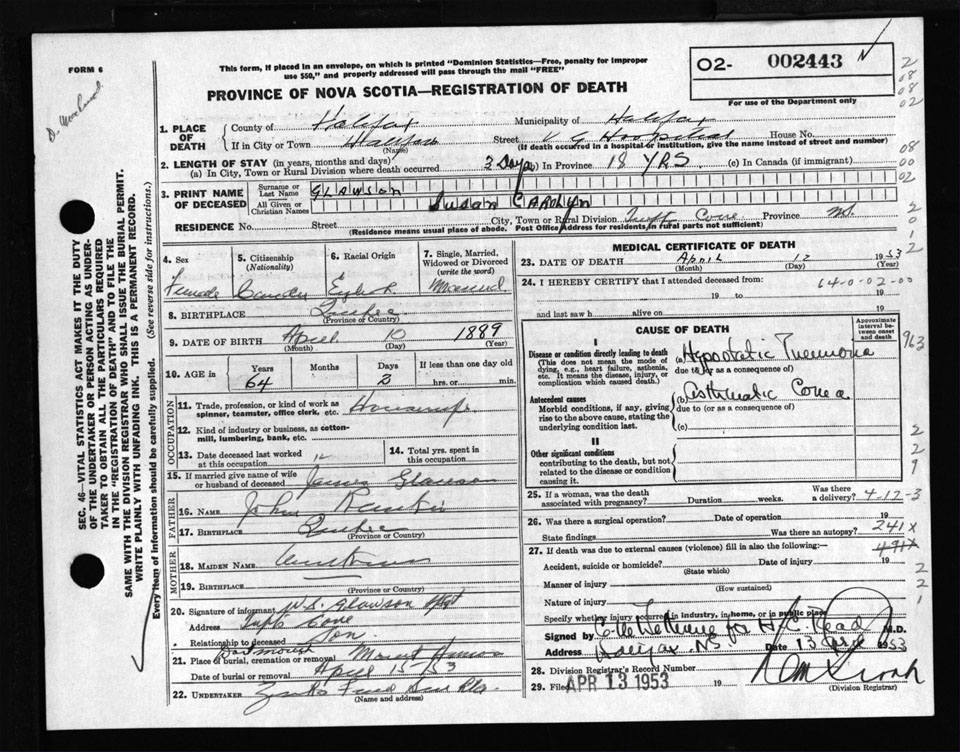 FORM 6
This form, if placed in an envelope, on which is printed "Dominion Statistics—Free, penalty for improper
use $50," and properly addressed will pass through the mail "FREE"
O2- 002443
PROVINCE OF NOVA SCOTIA—REGISTRATION OF DEATH
For use of the Department only
1. PLACE OF DEATH
County of Halifax Municipality of Halifax
If in City or Town Halifax (Name) Street V. G. Hospital House No.
(If death occurred in a hospital or institution, give the name instead of street and number)
2. LENGTH OF STAY (in years, months and days)
(a) In City, Town or Rural Division where death occurred 3 Days (b) In Province 18 YRS (c) In Canada (if immigrant)
3. PRINT NAME OF DECEASED
Surname or Last Name GLAWSON
All Given or Christian Names SUSAN CAROLYN
RESIDENCE No. Street City, Town or Rural Division Cove Province N.S.
(Residence means usual place of abode. Post Office Address for residents in rural parts not sufficient)
4. Sex Female
5. Citizenship (Nationality)
6. Racial Origin
7. Single, Married, Widowed or Divorced (write the word) Married
8. BIRTHPLACE Quebec
(Province or Country)
9. DATE OF BIRTH April 10 1889
(Month) (Day) (Year)
10. AGE in Years 64 Months Days 2 If less than one day old hrs. or min.
OCCUPATION
11. Trade, profession, or kind of work as spinner, teamster, office clerk, etc. Housewife
12. Kind of industry or business, as cotton-mill, lumbering, bank, etc.
13. Date deceased last worked at this occupation
14. Total yrs. spent in this occupation
15. If married give name of wife or husband of deceased James Glawson
FATHER
16. NAME John
17. BIRTHPLACE Quebec
(Province or Country)
MOTHER
18. MAIDEN NAME
19. BIRTHPLACE
(Province or Country)
20. Signature of informant W. S. Glawson
Address Cove
Relationship to deceased Son
Dartmouth
21. Place of burial, cremation or removal Mount Hermon
Date of burial or removal April 15-53
22. UNDERTAKER
MEDICAL CERTIFICATE OF DEATH
23. DATE OF DEATH April 12 1953
(Month) (Day) (Year)
24. I HEREBY CERTIFY that I attended deceased from:
64-0-02-00
19 to 19
and last saw h alive on 19
CAUSE OF DEATH
Approximate interval between onset and death
I
Disease or condition directly leading to death
(This does not mean the mode of dying, e.g., heart failure, asthenia, etc. It means the disease, injury, or complication which caused death.)
(a) Hypostatic Pneumonia
due to (or as a consequence of)
Antecedent causes
Morbid conditions, if any, giving rise to the above cause, stating the underlying condition last.
(b) Asthmatic
due to (or as a consequence of)
(c)
II
Other significant conditions
contributing to the death, but not related to the disease or condition causing it.
25. If a woman, was the death associated with pregnancy? Duration weeks. Was there a delivery? 4-12-3
26. Was there a surgical operation? Date of operation 19
State findings Was there an autopsy?
241X
27. If death was due to external causes (violence) fill in also the following:—
491X
Accident, suicide or homicide? Date of injury 19
(State which)
Manner of injury
(How sustained)
Nature of injury
Specify whether injury occurred in industry, in home, or in public place
Signed by for H. C. Read M.D.
Address Halifax N.S. Date 13 1953
28. Division Registrar's Record Number
29. Filed APR 13 1953 19
(Division Registrar)
SEC. 46—VITAL STATISTICS ACT MAKES IT THE DUTY
OF THE UNDERTAKER OR PERSON ACTING AS UNDER-
TAKER TO OBTAIN ALL THE PARTICULARS REQUIRED
IN THE "REGISTRATION OF DEATH" AND TO FILE THE
SAME WITH THE DIVISION REGISTRAR WHO SHALL ISSUE THE BURIAL PERMIT.
WRITE PLAINLY WITH UNFADING INK. THIS IS A PERMANENT RECORD.
Every item of information should be carefully supplied. (See reverse side for instructions.)
2
08
08
02
08
00
02
2
0
1
2
963
2
2
9
2
2
1